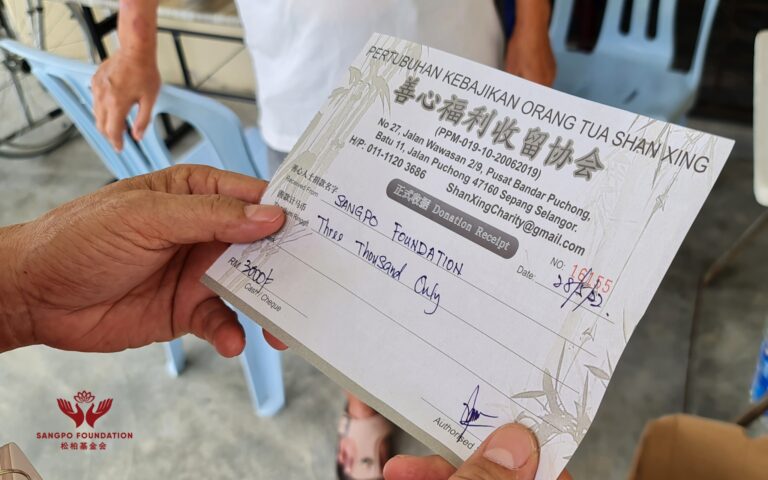 PERTUBUHAN KEBAJIKAN ORANG TUA SHAN XING
善心福利收留协会
(PPM-019-10-20062019)
No 27, Jalan Wawasan 2/9, Pusat Bandar Puchong,
Batu 11, Jalan Puchong 47160 Sepang Selangor.
H/P: 011-1120 3686 ShanXingCharity@gmail.com
正式收据 Donation Receipt
NO: 16155
Date:
善心人士捐款名字
Received From SANGPO FOUNDATION
Three Thousand Only
RM 3000/-
Cash/ Cheque
Authorised
SANGPO FOUNDATION
松柏基金会